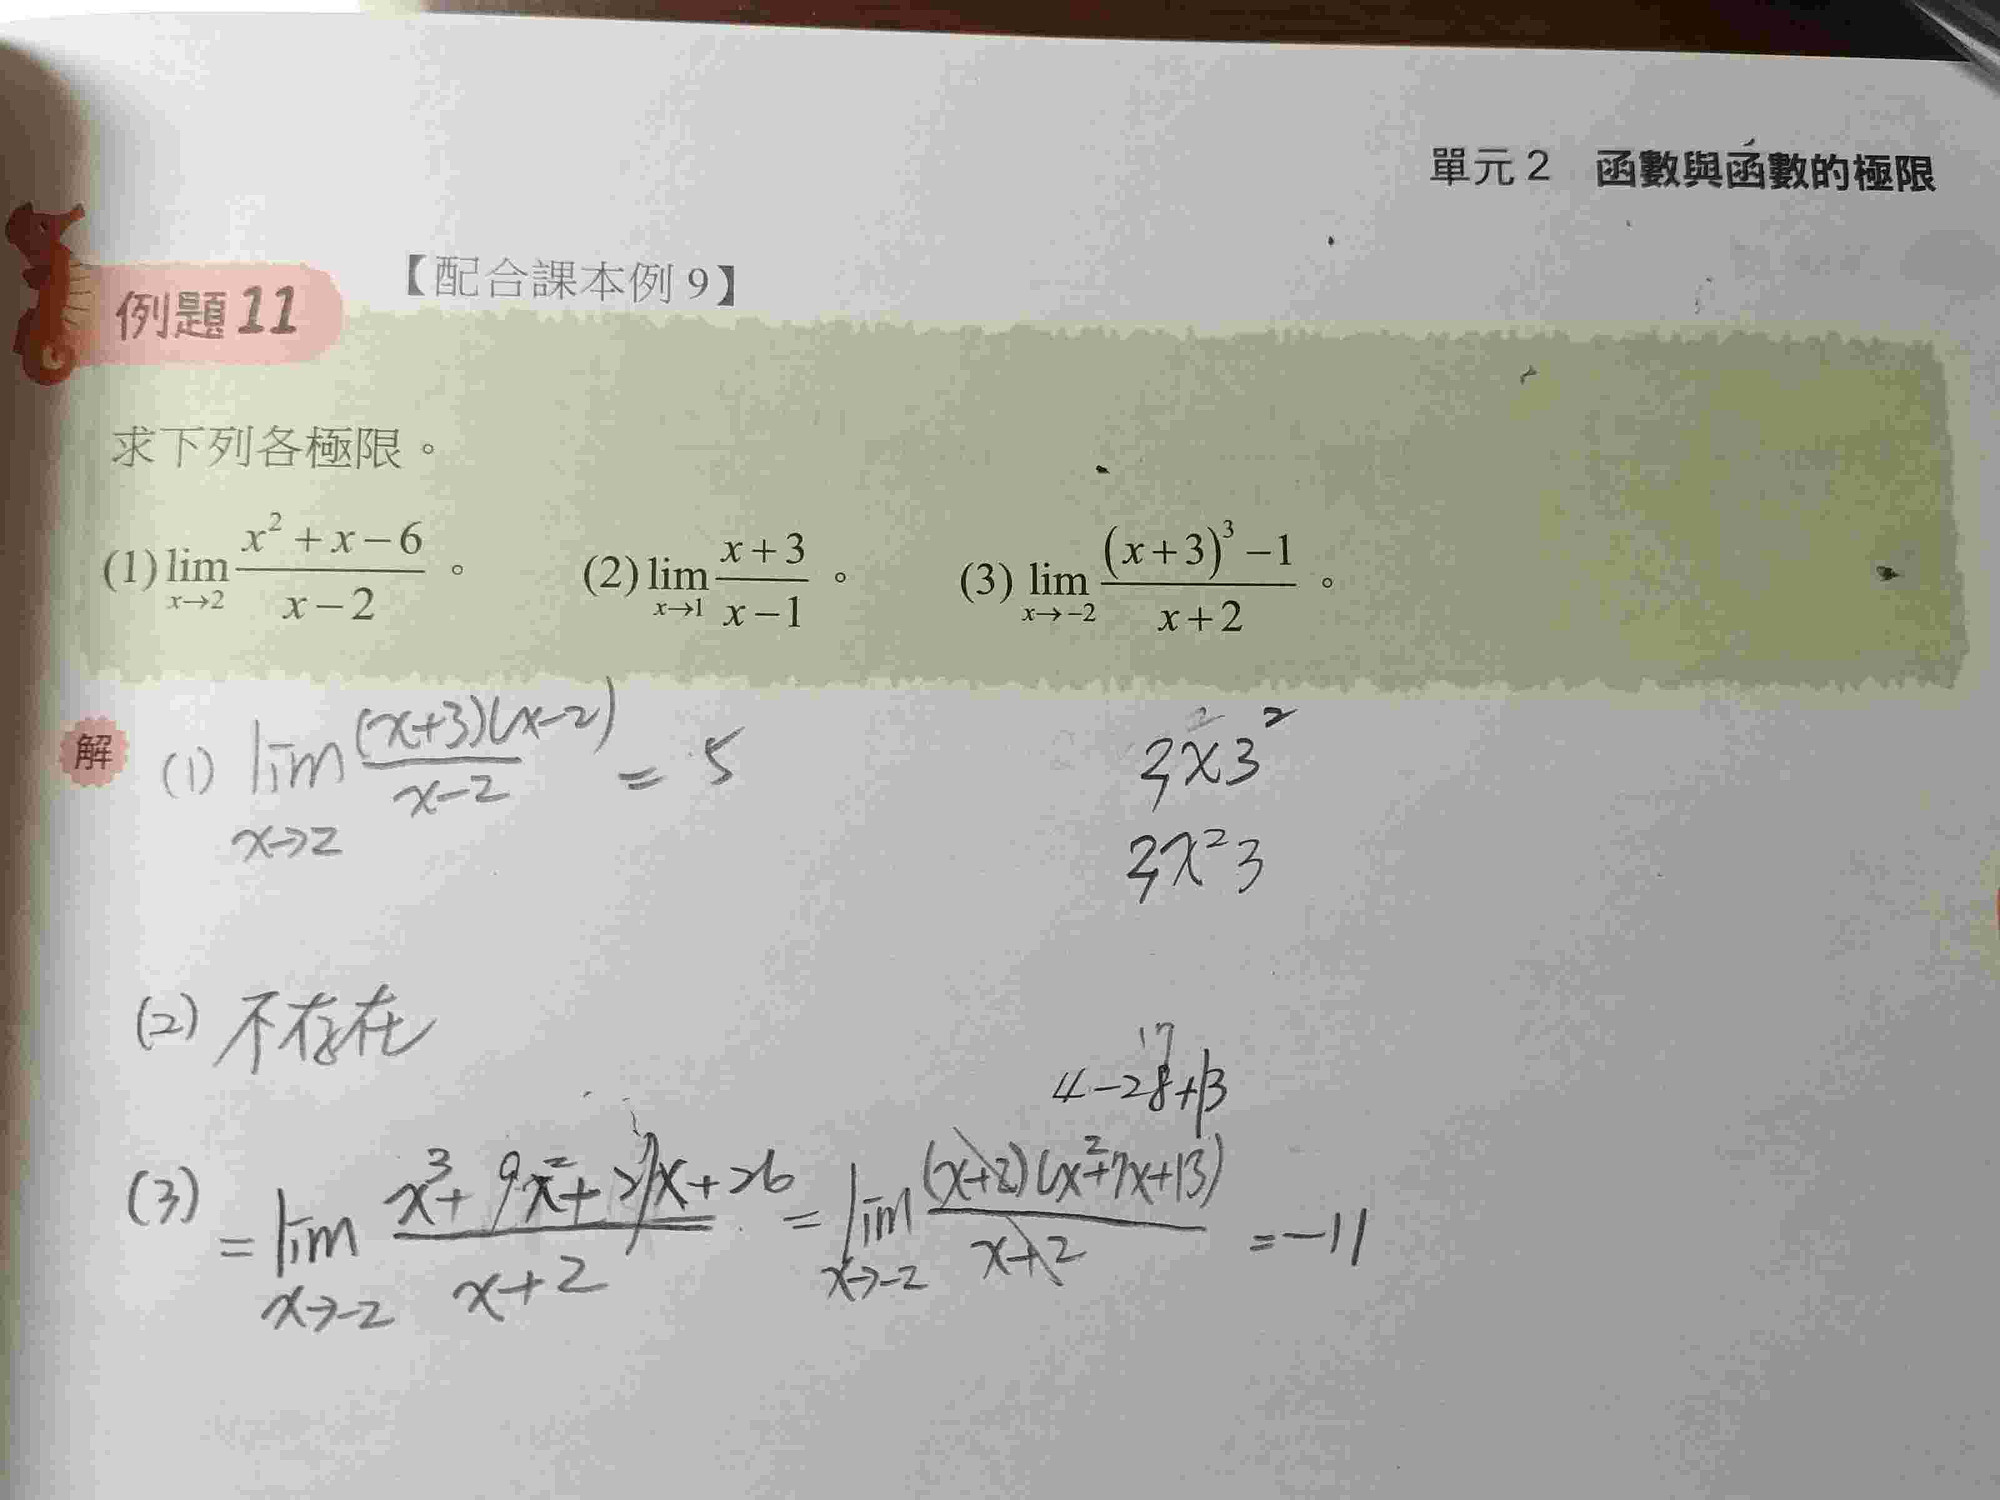 單元 2 函數與函數的極限
例題 11 【配合課本例 9】
求下列各極限。
(1) lim x→2 (x² + x − 6)/(x − 2)。 (2) lim x→1 (x + 3)/(x − 1)。 (3) lim x→−2 ((x + 3)³ − 1)/(x + 2)。
解 (1) lim x→2 (x+3)(x−2)/(x−2) = 5
3x3²
3x²3
(2) 不存在
17
4−28+13
(3) = lim x→−2 (x³+9x²+27x+26)/(x+2) = lim x→−2 (x+2)(x²+7x+13)/(x+2) = −11